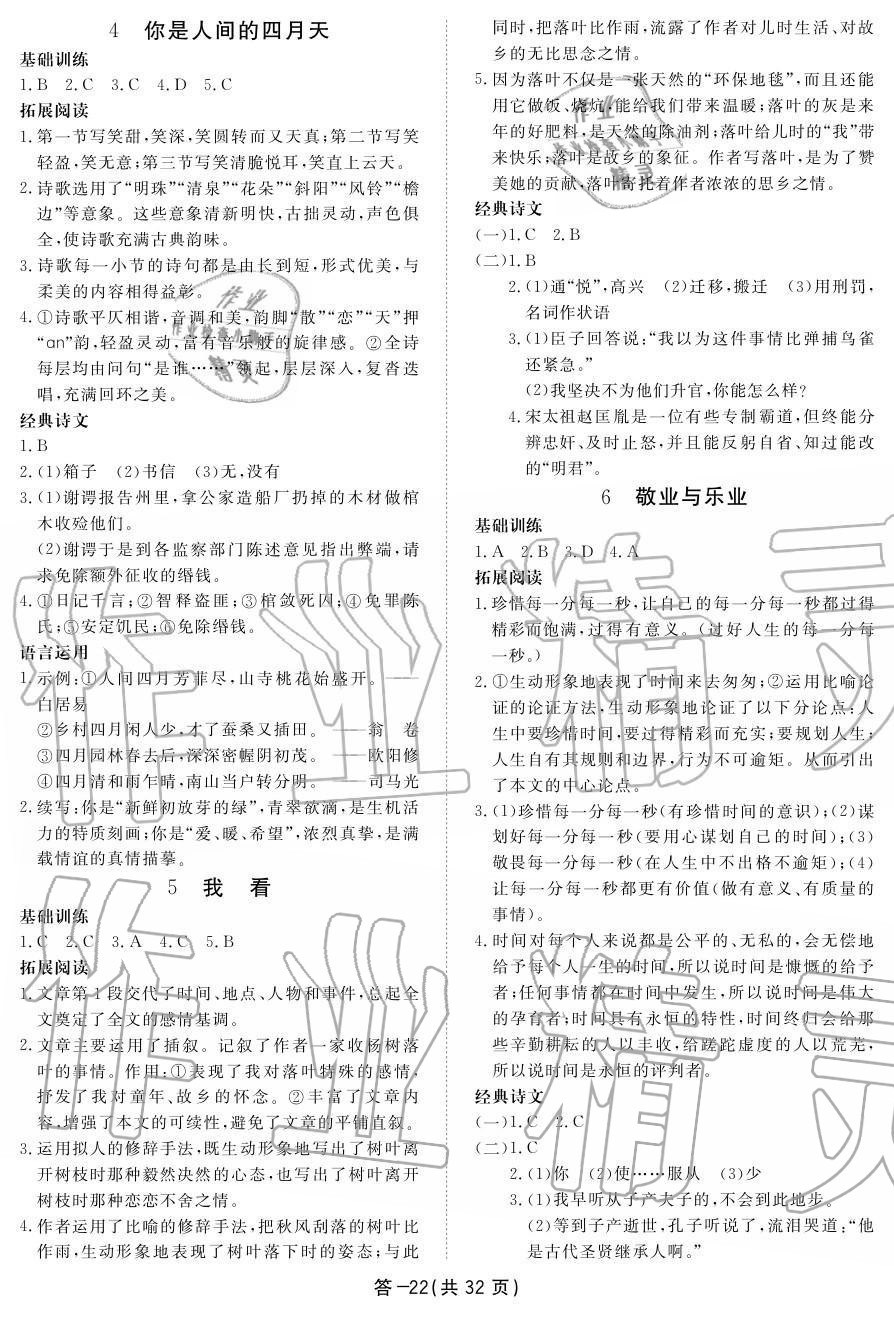 4 你是人间的四月天
基础训练
1.B 2.C 3.C 4.D 5.C
拓展阅读
1.第一节写笑甜,笑深,笑圆转而又天真;第二节写笑
轻盈,笑无意;第三节写笑清脆悦耳,笑直上云天。
2.诗歌选用了“明珠”“清泉”“花朵”“斜阳”“风铃”“檐
边”等意象。这些意象清新明快,古拙灵动,声色俱
全,使诗歌充满古典韵味。
3.诗歌每一小节的诗句都是由长到短,形式优美,与
柔美的内容相得益彰。
4.①诗歌平仄相谐,音调和美,韵脚“散”“恋”“天”押
“an”韵,轻盈灵动,富有音乐般的旋律感。②全诗
每层均由问句“是谁……”领起,层层深入,复沓迭
唱,充满回环之美。
经典诗文
1.B
2.(1)箱子 (2)书信 (3)无,没有
3.(1)谢谔报告州里,拿公家造船厂扔掉的木材做棺
木收殓他们。
(2)谢谔于是到各监察部门陈述意见指出弊端,请
求免除额外征收的缗钱。
4.①日记千言;②智释盗匪;③棺敛死囚;④免罪陈
氏;⑤安定饥民;⑥免除缗钱。
语言运用
1.示例:①人间四月芳菲尽,山寺桃花始盛开。——
白居易
②乡村四月闲人少,才了蚕桑又插田。——翁 卷
③四月园林春去后,深深密幄阴初茂。——欧阳修
④四月清和雨乍晴,南山当户转分明。——司马光
2.续写:你是“新鲜初放芽的绿”,青翠欲滴,是生机活
力的特质刻画;你是“爱、暖、希望”,浓烈真挚,是满
载情谊的真情描摹。
5 我 看
基础训练
1.C 2.C 3.A 4.C 5.B
拓展阅读
1.文章第1段交代了时间、地点、人物和事件,总起全
文奠定了全文的感情基调。
2.文章主要运用了插叙。记叙了作者一家收杨树落
叶的事情。作用:①表现了我对落叶特殊的感情,
抒发了我对童年、故乡的怀念。②丰富了文章内
容,增强了本文的可续性,避免了文章的平铺直叙。
3.运用拟人的修辞手法,既生动形象地写出了树叶离
开树枝时那种毅然决然的心态,也写出了树叶离开
树枝时那种恋恋不舍之情。
4.作者运用了比喻的修辞手法,把秋风刮落的树叶比
作雨,生动形象地表现了树叶落下时的姿态;与此
同时,把落叶比作雨,流露了作者对儿时生活、对故
乡的无比思念之情。
5.因为落叶不仅是一张天然的“环保地毯”,而且还能
用它做饭、烧炕,能给我们带来温暖;落叶的灰是来
年的好肥料,是天然的除油剂;落叶给儿时的“我”带
来快乐;落叶是故乡的象征。作者写落叶,是为了赞
美她的贡献,落叶寄托着作者浓浓的思乡之情。
经典诗文
(一)1.C 2.B
(二)1.B
2.(1)通“悦”,高兴 (2)迁移,搬迁 (3)用刑罚,
名词作状语
3.(1)臣子回答说:“我以为这件事情比弹捕鸟雀
还紧急。”
(2)我坚决不为他们升官,你能怎么样?
4.宋太祖赵匡胤是一位有些专制霸道,但终能分
辨忠奸、及时止怒,并且能反躬自省、知过能改
的“明君”。
6 敬业与乐业
基础训练
1.A 2.B 3.D 4.A
拓展阅读
1.珍惜每一分每一秒,让自己的每一分每一秒都过得
精彩而饱满,过得有意义。(过好人生的每一分每
一秒。)
2.①生动形象地表现了时间来去匆匆;②运用比喻论
证的论证方法,生动形象地论证了以下分论点:人
生中要珍惜时间,要过得精彩而充实;要规划人生;
人生自有其规则和边界,行为不可逾矩。从而引出
了本文的中心论点。
3.(1)珍惜每一分每一秒(有珍惜时间的意识);(2)谋
划好每一分每一秒(要用心谋划自己的时间);(3)
敬畏每一分每一秒(在人生中不出格不逾矩);(4)
让每一分每一秒都更有价值(做有意义、有质量的
事情)。
4.时间对每个人来说都是公平的、无私的,会无偿地
给予每个人一生的时间,所以说时间是慷慨的给予
者;任何事情都在时间中发生,所以说时间是伟大
的孕育者;时间具有永恒的特性,时间终归会给那
些辛勤耕耘的人以丰收,给蹉跎虚度的人以荒芜,
所以说时间是永恒的评判者。
经典诗文
(一)1.C 2.C
(二)1.C
2.(1)你 (2)使……服从 (3)少
3.(1)我早听从子产夫子的,不会到此地步。
(2)等到子产逝世,孔子听说了,流泪哭道:“他
是古代圣贤继承人啊。”
答—22(共 32 页)
作业精灵
作业精灵